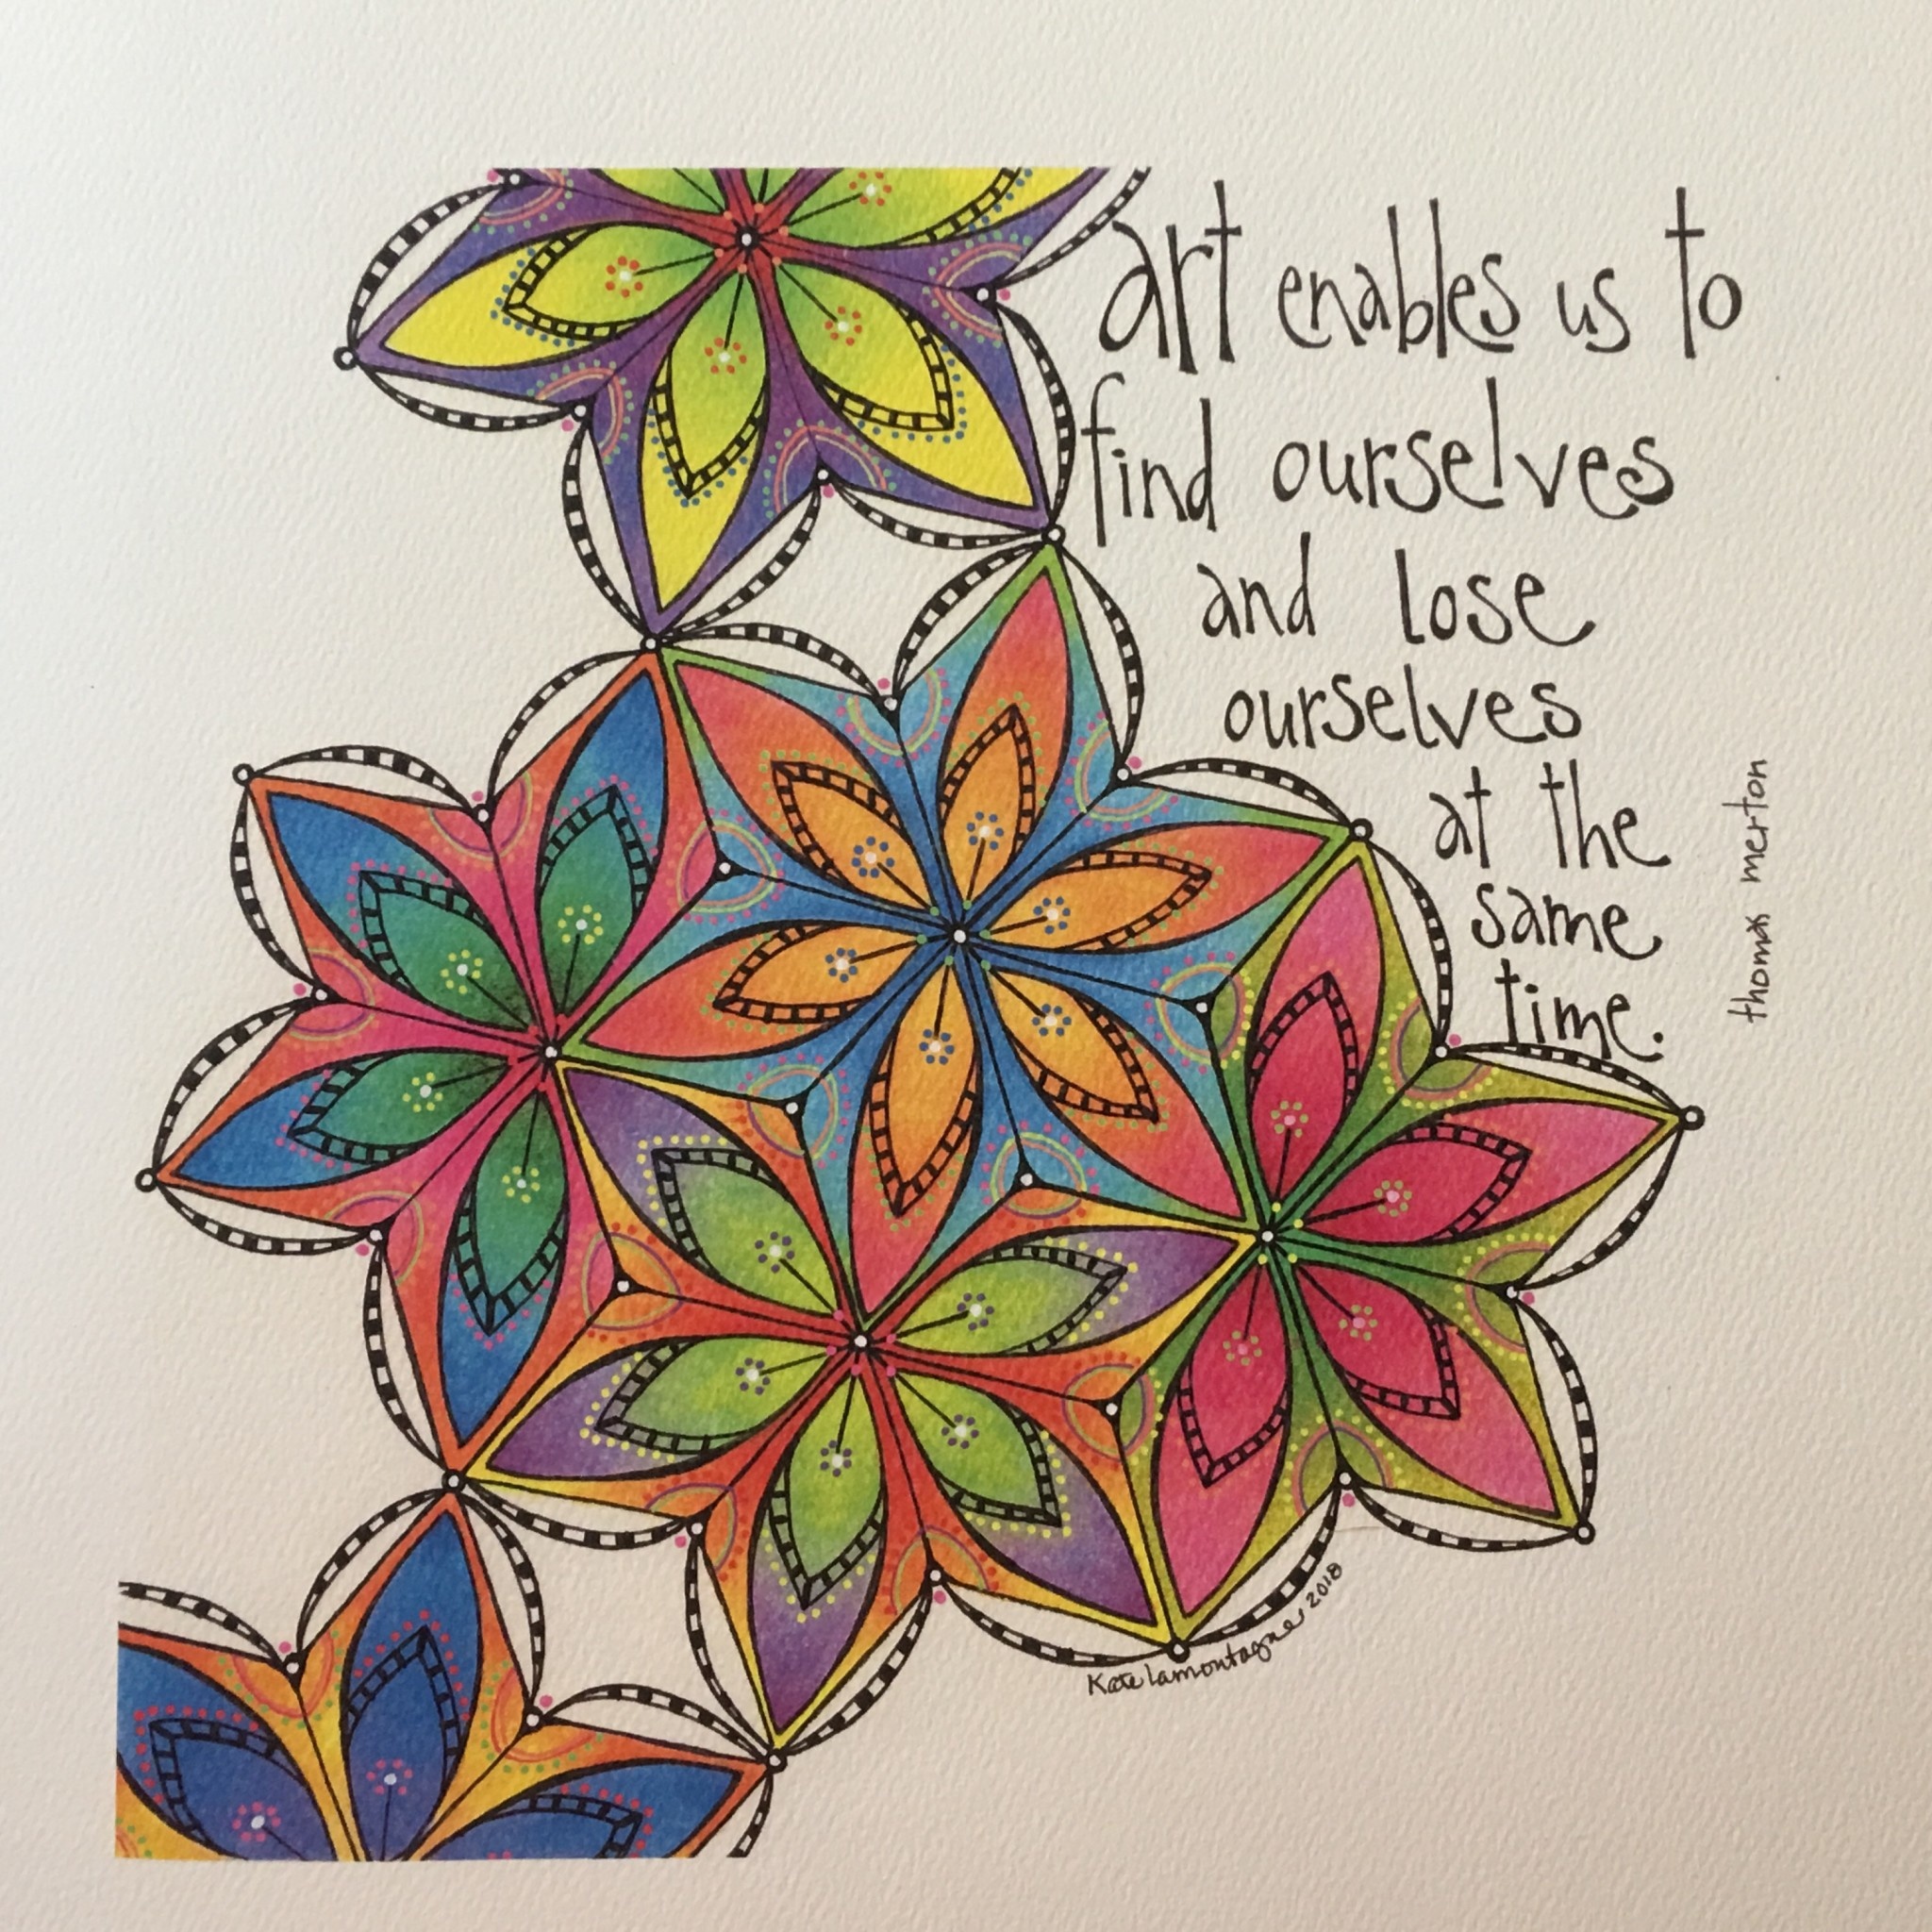 art enables us to
find ourselves
and lose
ourselves
at the
same
time.
thomas merton
Kate Lamontagne 2018